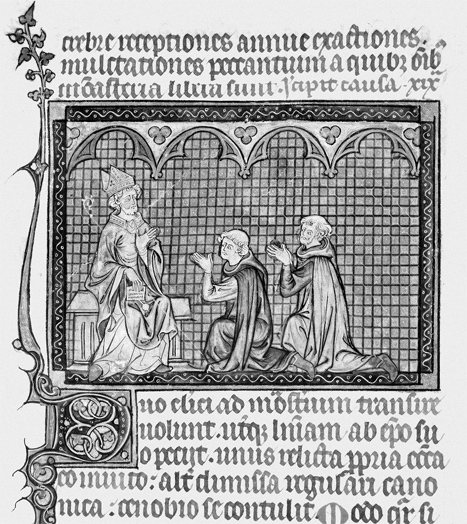 crebre receptiones annue exactiones.
mulctationes peccantium a quibz oībz
mōasteria libera sunt. Īcipit causa .xix
Duo clici ad mōstium transire
uolunt. utqz licīam ab epō su
o petijt. unus relicta ppria eccīa
eo inuito: alt dimissa regulari cano
nica: cenobio se contulit Modo qr si